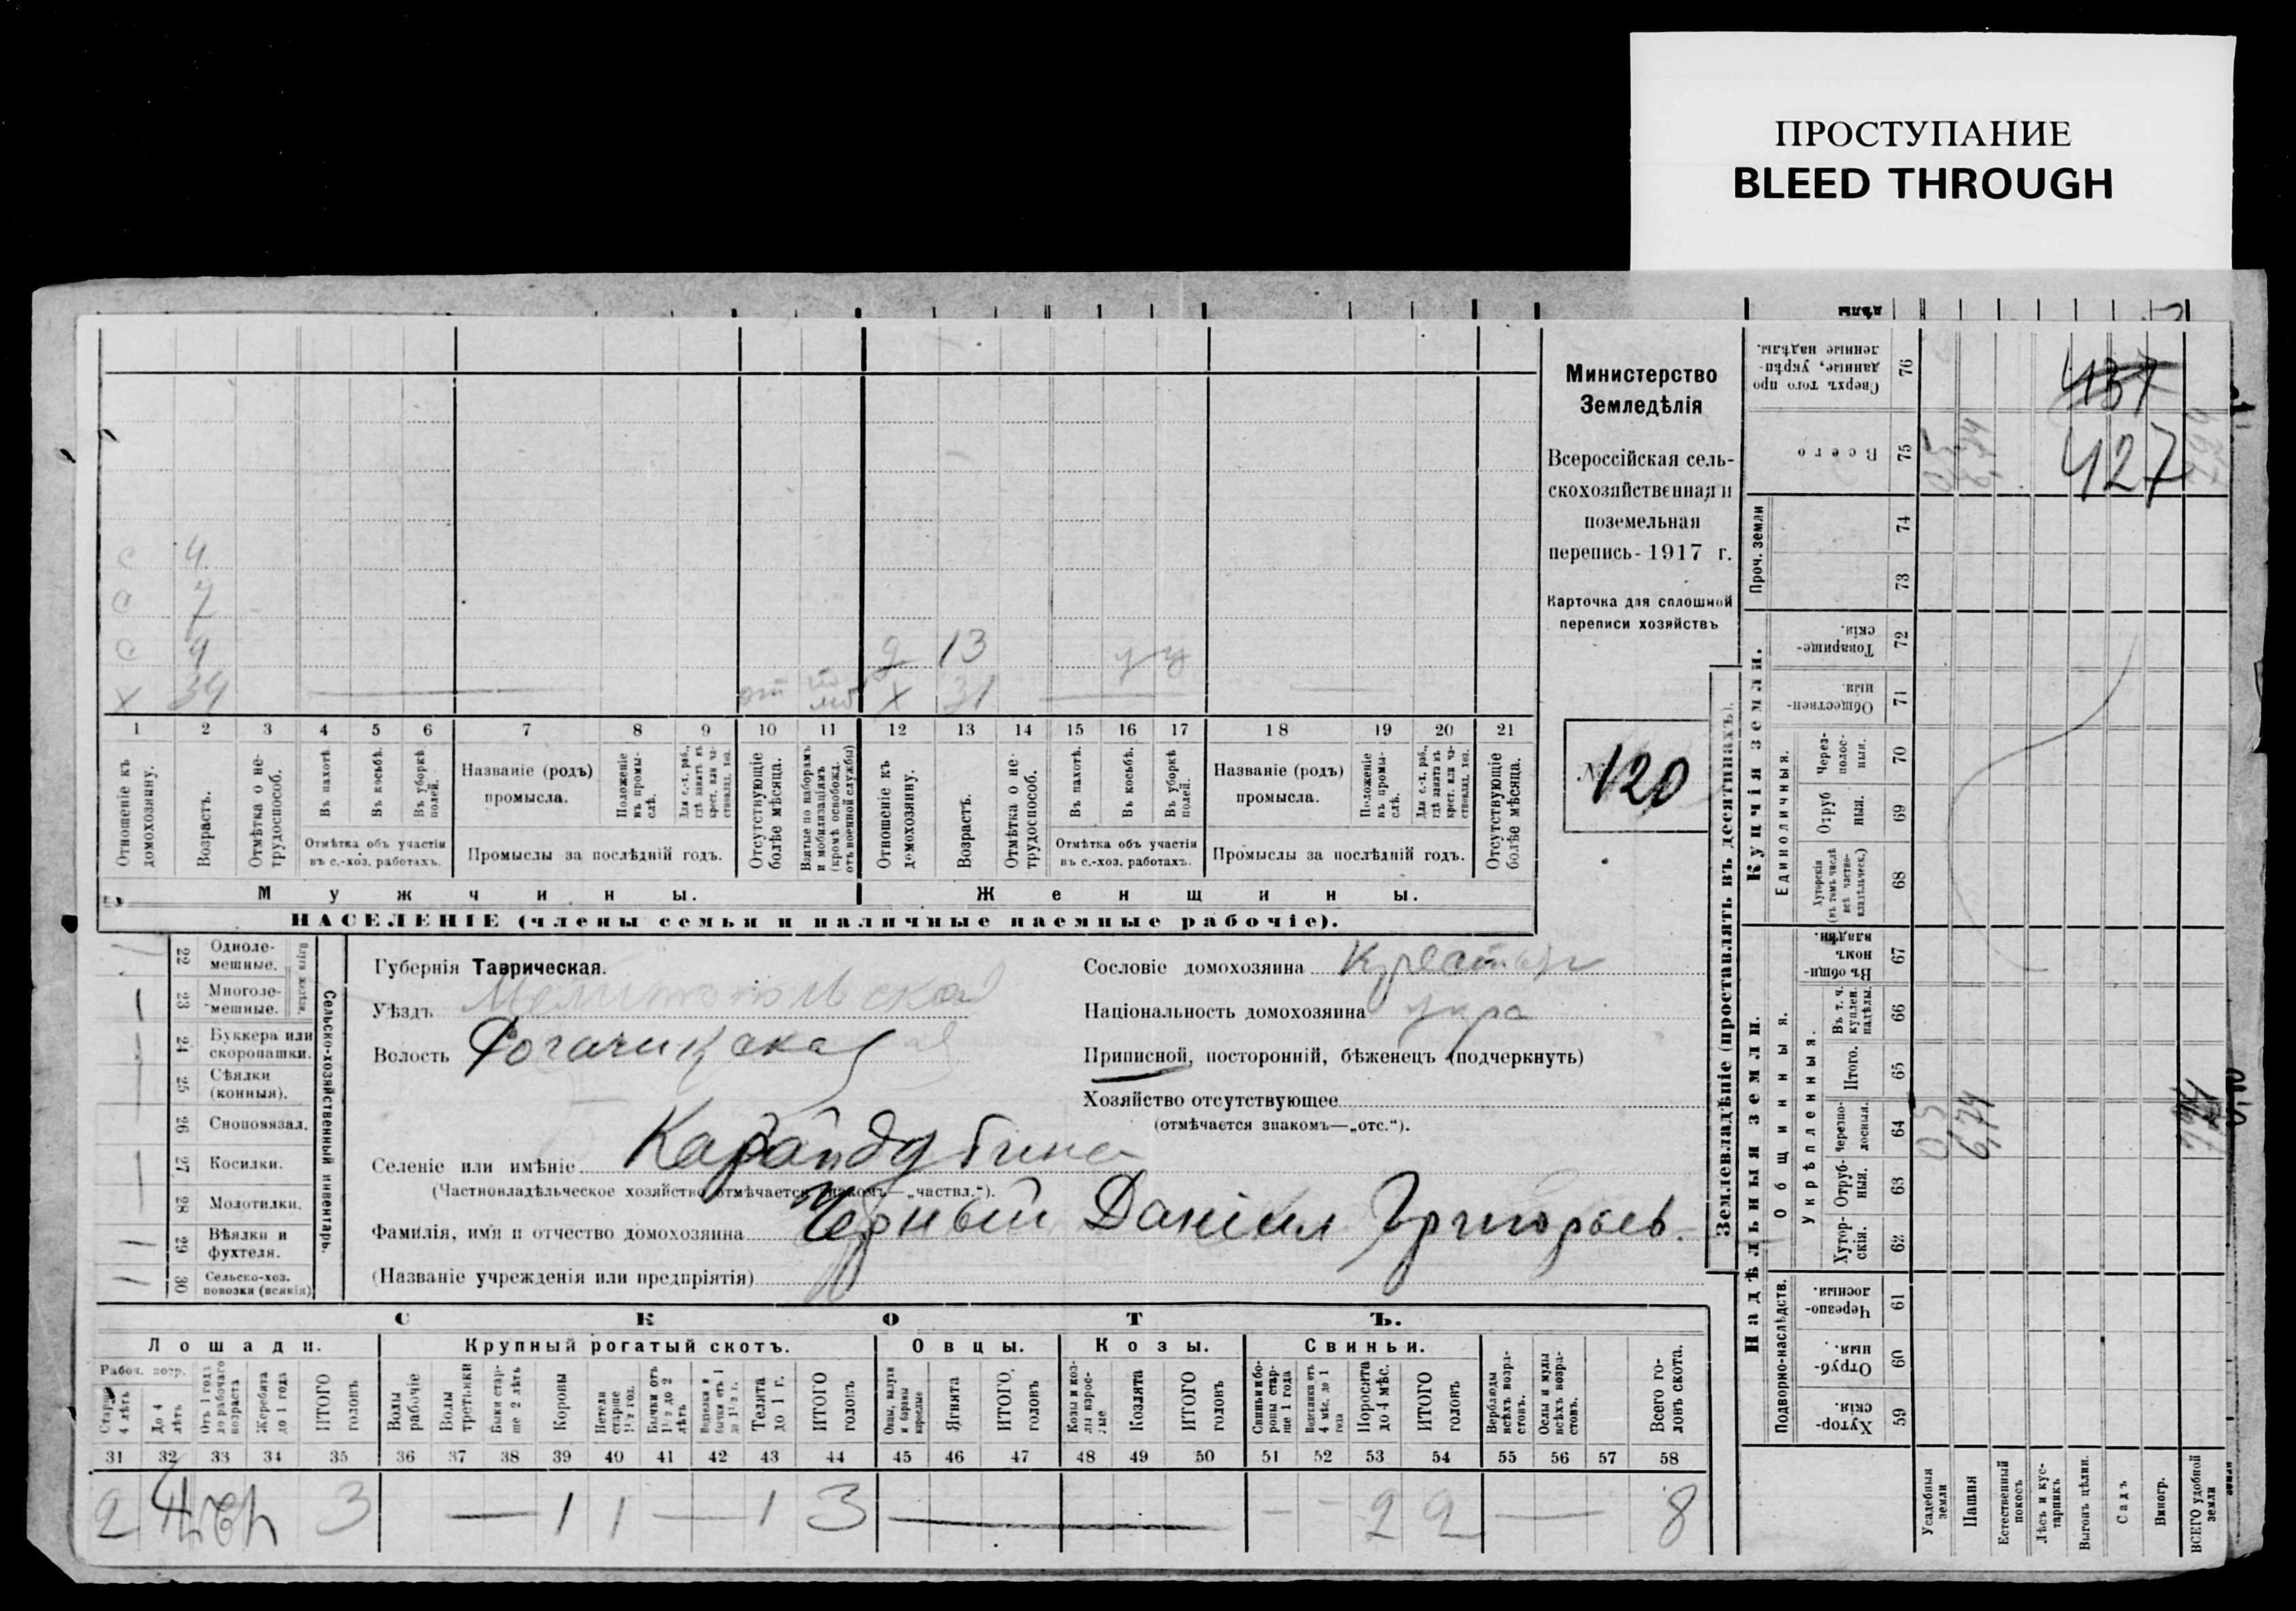 ПРОСТУПАНИЕ
BLEED THROUGH
Министерство
Земледѣлія
Всероссійская сель-
скохозяйственная и
поземельная
перепись - 1917 г.
Карточка для сплошной
переписи хозяйствъ
№ 120
с 4
с 7
с 9 д 13 у у
х 39 х 31
1 2 3 4 5 6 7 8 9 10 11 12 13 14 15 16 17 18 19 20 21
Отношеніе къ домохозяину.
Возрастъ.
Отмѣтка о нетрудоспособ.
Въ пахотѣ.
Въ косьбѣ.
Въ уборкѣ полей.
Отмѣтка объ участіи
въ с.-хоз. работахъ.
Названіе (родъ)
промысла.
Положеніе въ промыслѣ.
Для с.-х. раб., гдѣ занятъ въ крест. или частновлад. хоз.
Промыслы за послѣдній годъ.
Отсутствующіе болѣе мѣсяца.
Взятые по наборамъ и мобилизаціямъ (кромѣ освобожд. отъ военной службы)
Отношеніе къ домохозяину.
Возрастъ.
Отмѣтка о нетрудоспособ.
Въ пахотѣ.
Въ косьбѣ.
Въ уборкѣ полей.
Отмѣтка объ участіи
въ с.-хоз. работахъ.
Названіе (родъ)
промысла.
Положеніе въ промыслѣ.
Для с.-х. раб., гдѣ занята въ крест. или частновлад. хоз.
Промыслы за послѣдній годъ.
Отсутствующіе болѣе мѣсяца.
Мужчины. Женщины.
НАСЕЛЕНІЕ (члены семьи и наличные наемные рабочіе).
22 Одноле-
мешные.
23 Многоле-
мешные.
24 Буккера или
скоропашки.
25 Сѣялки
(конныя).
26 Сноповязал.
27 Косилки.
28 Молотилки.
29 Вѣялки и
фухтеля.
30 Сельско-хоз.
повозки (всякія)
Сельско-хозяйственный инвентарь.
Губернія Таврическая.
Уѣздъ Мелитопольская
Волость Рогачицкая
Селеніе или имѣніе Карайдубина
(Частновладѣльческое хозяйство отмѣчается знакомъ—„частвл.“).
Фамилія, имя и отчество домохозяина Черный Даніил Григорьев.
(Названіе учрежденія или предпріятія)
Сословіе домохозяина Крестьян
Національность домохозяина укра
Приписной, посторонній, бѣженецъ (подчеркнуть)
Хозяйство отсутствующее
(отмѣчается знакомъ—„отс.“).
СКОТЪ.
Лошади. Крупный рогатый скотъ. Овцы. Козы. Свиньи.
Рабоч. возр.
Старше 4 лѣтъ
До 4 лѣтъ
Отъ 1 года до рабочаго возраста
Жеребята до 1 года
ИТОГО головъ
Волы рабочіе
Волы третьяки
Быки старше 2 лѣтъ
Коровы
Нетели старше 1½ год.
Бычки отъ 1½ до 2 лѣтъ
Телята до 1 г.
ИТОГО головъ
Ягнята
ИТОГО головъ
Козлята
ИТОГО головъ
Поросята до 4 мѣс.
ИТОГО головъ
Верблюды всѣхъ возрастовъ.
Ослы и мулы всѣхъ возрастовъ.
Всего головъ скота.
31 32 33 34 35 36 37 38 39 40 41 42 43 44 45 46 47 48 49 50 51 52 53 54 55 56 57 58
2 3 — 1 1 — 1 3 — — — 2 2 — 8
Землевладѣніе (проставлять въ десятинахъ).
Купчія земли.
Надѣльныя земли.
Сверхъ того проданные, укрѣпленные надѣлы. 76
Всего 75
Проч. земли 74 73
Товарищескія. 72
Общественныя. 71
Единоличныя.
Черезполосныя. 70
Отрубныя. 69
Хуторскія (въ томъ числѣ всѣ частновладѣльческ.) 68
Въ общинномъ владѣн. 67
Общинныя.
Укрѣпленныя.
Въ т. ч. куплен. надѣлы. 66
Итого. 65
Черезполосныя. 64
Отрубныя. 63
Хуторскія. 62
Подворно-наслѣдств.
Черезполосныя. 61
Отрубныя. 60
Хуторскія. 59
Усадебныя земли
Пашня
Естественный покосъ
Лѣсъ и кустарникъ
Выгонъ цѣлин.
Садъ
Виногр.
ВСЕГО удобной земли
437
427
05
6,74